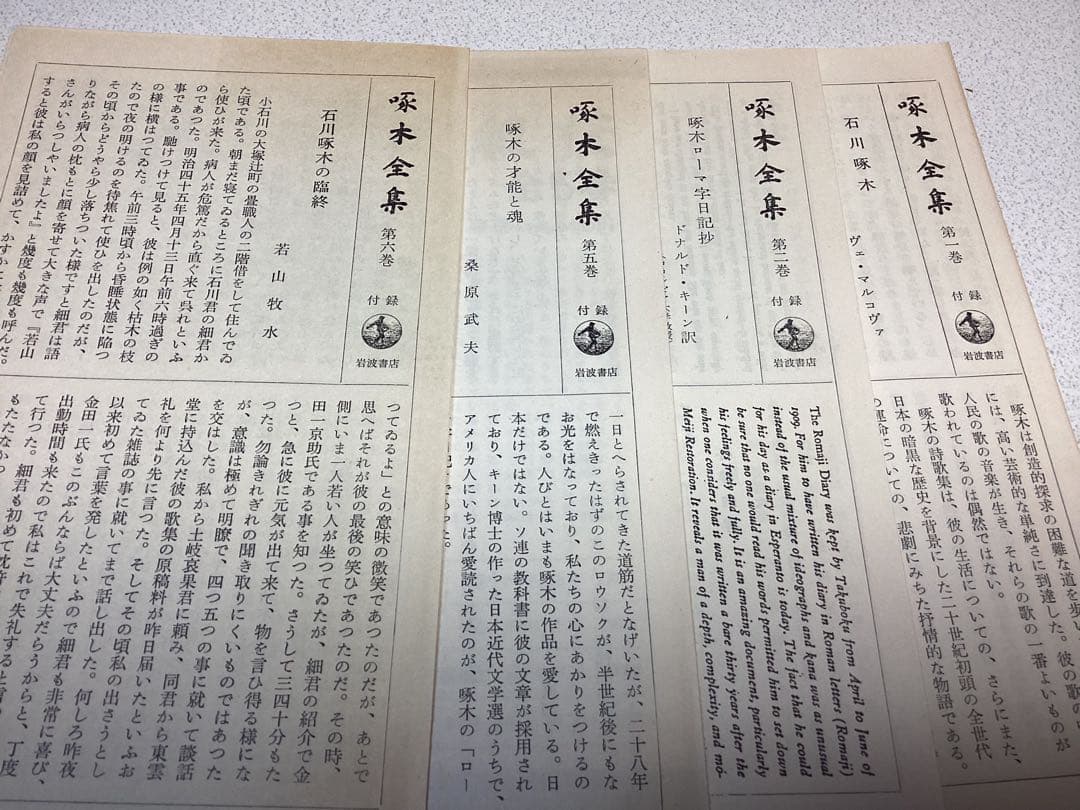 啄木全集 第一巻
付録
岩波書店
石川啄木
ヴェ・マルコヴァ
啄木は創造的探求の困難な道を歩い
には、高い芸術的な単純さに到達した。彼の歌の
人民の歌の音楽が生き、それらの歌の一番よいものが
歌われているのは偶然ではない。
啄木の詩歌集は、彼の生活についての、さらにまた、
日本の暗黒な歴史を背景にした二十世紀初頭の全世代
の運命についての、悲劇にみちた抒情的な物語である。
啄木全集 第二巻
付録
岩波書店
啄木ローマ字日記抄
ドナルド・キーン訳
The Romaji Diary was kept by Takuboku from April to June of
1909. For him to have written his diary in Roman letters (Romaji)
instead of the usual mixture of ideographs and kana was as unusual
for his day as a diary in Esperanto is today. The fact that he could
be sure that no one would read his words permitted him to set down
his feelings freely and fully. It is an amazing document, particularly
when one considers that it was written a bare thirty years after the
Meiji Restoration. It reveals a man of a depth, complexity, and mo-
啄木全集 第五巻
付録
岩波書店
啄木の才能と魂
桑原武夫
一日とへらされてきた道筋だとなげいたが、二十八年
で燃えきったはずのこのロウソクが、半世紀後にもな
お光をはなっており、私たちの心にあかりをつけるの
である。人びとはいまも啄木の作品を愛している。日
本だけではない。ソ連の教科書に彼の文章が採用され
ており、キーン博士の作った日本近代文学選のうちで、
アメリカ人にいちばん愛読されたのが、啄木の『ロー
啄木全集 第六巻
付録
岩波書店
石川啄木の臨終
若山牧水
小石川の大塚辻町の畳職人の二階借をして住んでゐ
た頃である。朝まだ寝てゐるところに石川君の細君か
ら使ひが来た。病人が危篤だから直ぐ来て呉れといふ
のであつた。明治四十五年四月十三日午前六時過ぎの
事である。馳けつけて見ると、彼は例の如く枯木の枝
の様に横はつてゐた。午前三時頃から昏睡状態に陥つ
たので夜の明けるのを待焦れて使ひを出したのだが、
その頃からどうやら少し落ちついた様ですと細君は語
りながら病人の枕もとに顔を寄せて大きな声で『若山
さんがいらつしやいましたよ』と幾度も幾度も呼んだ。
すると彼は私の顔を見詰めて、かすかに
つてゐるよ」との意味の微笑であつたのだが、あとで
思へばそれが彼の最後の笑ひであつたのだ。その時、
側にいま一人若い人が坐つてゐたが、細君の紹介で金
田一京助氏である事を知つた。さうして三四十分もた
つと、急に彼に元気が出て来て、物を言ひ得る様にな
つた。勿論きれぎれの聞き取りにくいものではあつた
が、意識は極めて明瞭で、四つ五つの事に就いて談話
を交はした。私から土岐哀果君に頼み、同君から東雲
堂に持込んだ彼の歌集の原稿料が昨日届いたといふお
礼を何より先に言つた。そしてその頃私の出さうとし
てゐた雑誌の事に就いてまで話し出した。何しろ昨夜
以来初めて言葉を発したといふので細君も非常に喜び、
金田一氏もこのぶんならば大丈夫だらうからと、丁度
出勤時間も来たので私はこれで失礼すると言
て行つた。細君も初めて
もたたなかつ